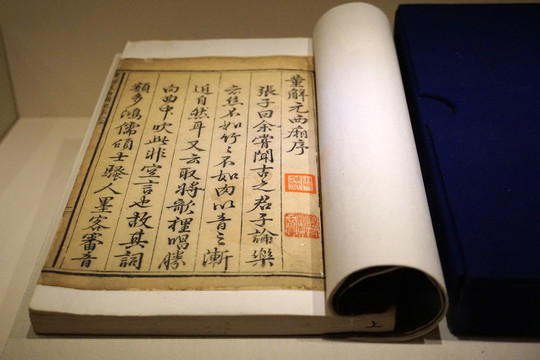 董解元西廂序
張子曰余嘗聞古之君子論樂
云絲不如竹〻不如肉以音之漸
近自然耳又云取將歌裡唱勝
向曲中吹此非空言也故其詞
類多鴻儒碩士騷人墨客審音
上